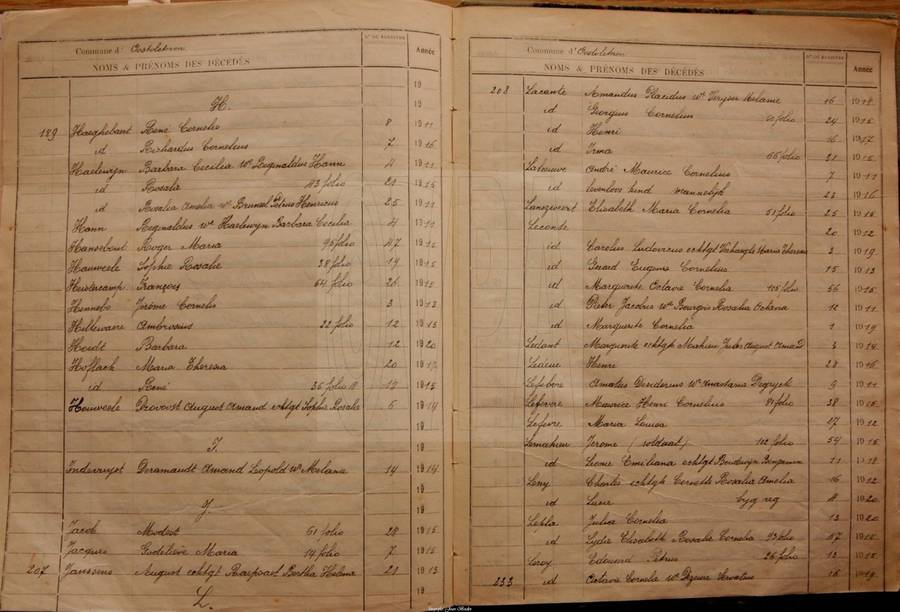 Commune d' Oostvleteren
NOMS & PRÉNOMS DES DÉCÉDÉS
N° DU REGISTRE
Année
19
H. 19
189 Haeghebaert René Cornelis 8 1911
id Richardus Cornelius 7 1916
Haelewyn Barbara Cecilia we Reginaldus Hann 4 1911
id Rosalie 43 folio 21 1915
id Rosalia Amelia we Brunsel Henricus 25 1911
Hann Reginaldus we Haelewyn Barbara Cecilia 4 1911
Hansebout Roger Maria 95 folio 47 19
Hauweele Sophie Rosalie 38 folio 19 1915
François 64 folio 26 1915
Hennebo Jérôme Cornelis 3 1913
Hillewaere Ambrosius 22 folio 12 1915
Houdt Barbara 12 1920
Hoflack Maria Theresia 20 19
id René 35 folio 19 1915
Houweele Provoost August Amand echtgt Sophie Rosalie 6 1914
19
I. 19
Inderauget Deramaudt Amand Leopold we Melanie 14 1914
19
J 19
Jacob Modest 61 folio 28 1915
Jacques Godelieve Maria 14 folio 7 1915
207 Janssens August echtgt Raepsaet Bertha Helena 21 1913
L. 19
Commune d' Oostvleteren
NOMS & PRÉNOMS DES DÉCÉDÉS
N° DU REGISTRE
Année
208 Lacante Amandus Placidus we Melanie 16 1918
id Georgius Cornelius folio 24 1915
id Henri 16 1917
id Irma 66 folio 21 1915
André Maurice Cornelius 7 1911
id levenloos kind mannelijk 23 1916
Elisabeth Maria Cornelia 51 folio 25 1915
Leconte 20 1912
id Carolus Ludovicus echtgt Maria Theresia 3 1919
id Gerard Eugene Cornelius 15 1913
id Marguerite Octavie Cornelia 105 folio 56 1915
id Pieter Jacobus we Bourgois Rosalia 12 1911
id Marguerite Cornelia 1 1919
Ledant Marguerite echtgt Mahieu Jules August Amand 3 1918
Henri 28 1916
Lefebvre Amatus Desiderius we Anastasia 9 1911
Lefevre Maurice Henri Cornelius 81 folio 38 1915
Lefevre Maria Louisa 27 1912
Lemahieu Jerome (soldaat) 102 folio 54 1915
id Leonie Emiliana echtgt Boudewyn Benjamin 11 1918
Leny Charles echtgt Cornette Rosalie Amelia 16 1912
id byg reg 4 1920
Julia Cornelia 13 1920
id Lydie Elisabeth Rosalie Cornelia 93 folio 47 1915
Leroy Edouard Petrus 26 folio 13 1915
233 id Octavie Cornelia we 16 1919